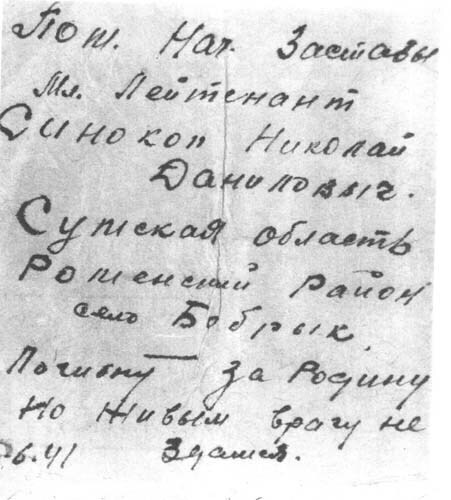 Пом. Нач. Заставы
Мл. Лейтенант
Синокоп Николай
Данилович.
Сумская область
Роменский район
село Бобрык.
Погибну за Родину
Но живым врагу не
6.41 здамся.